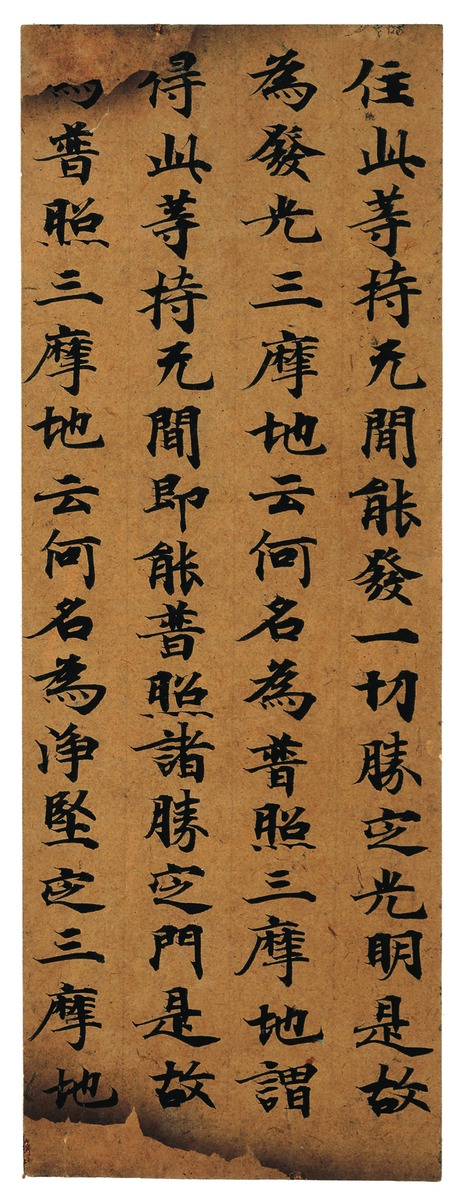 住此等持无間能發一切勝定光明是故
為發光三摩地云何名為普照三摩地謂
得此等持无間即能普照諸勝定門是故
普照三摩地云何名為浄堅定三摩地